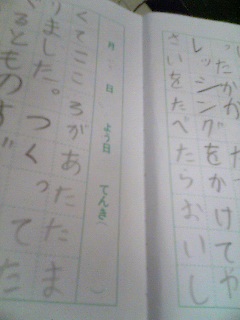 レッシングをかけてや
さいをたべたらおいし
月 日 よう日 てんき( )
くてこころがあたたま
りました。つくってた
るとものす